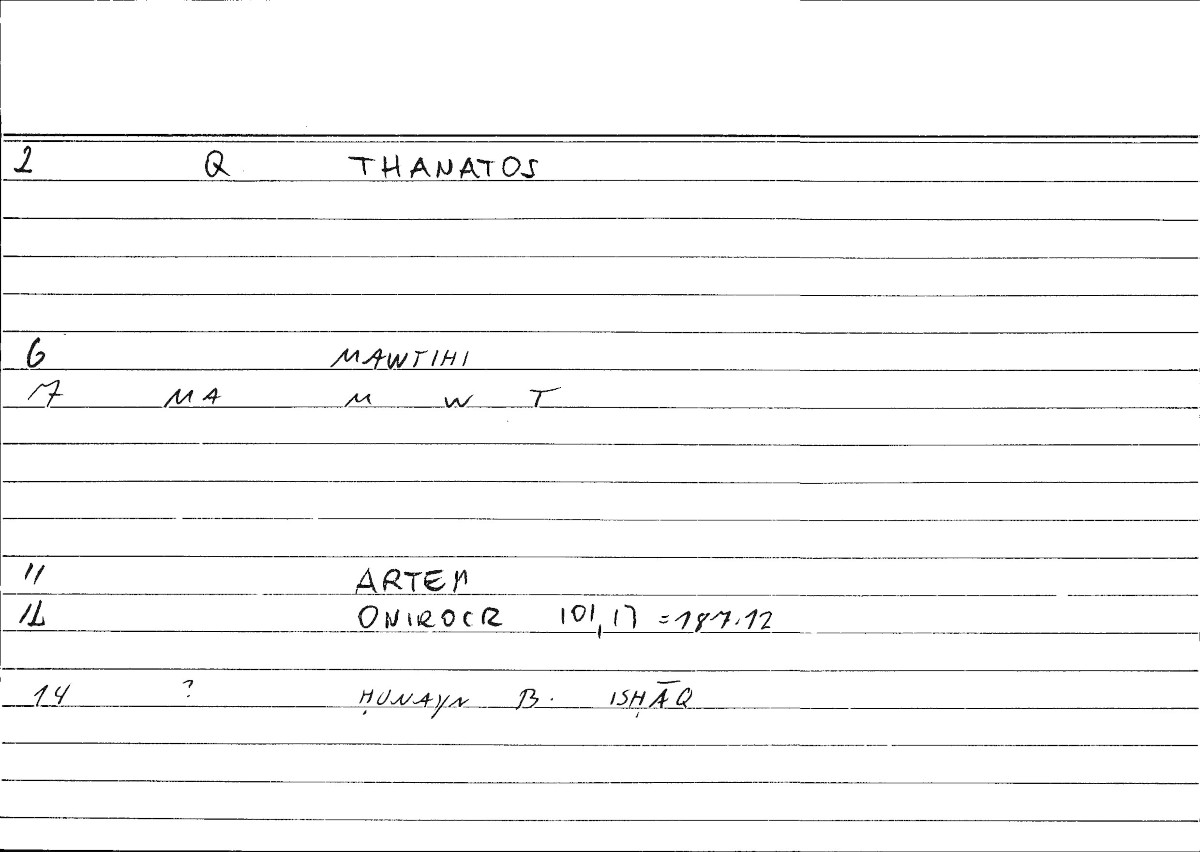 2 Q THANATOS
6 MAWTIHI
7 MA M W T
11 ARTEM
12 ONIROCR 101,17 =187.12
14 ? ḤUNAYN B. ISḤĀQ